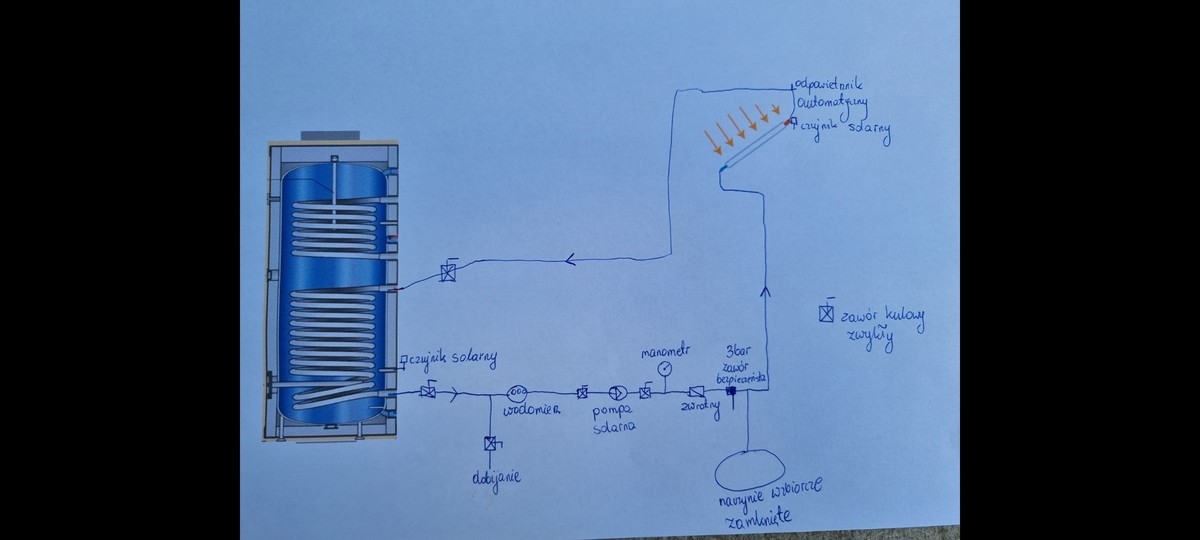 odpowietrznik
automatyczny
czujnik solarny
zawór kulowy
zwykły
czujnik solarny
manometr
3bar
zawór
bezpieczeństa
wodomierz
pompa
solarna
zwrotny
dobijanie
naczynie wzbiorcze
zamknięte